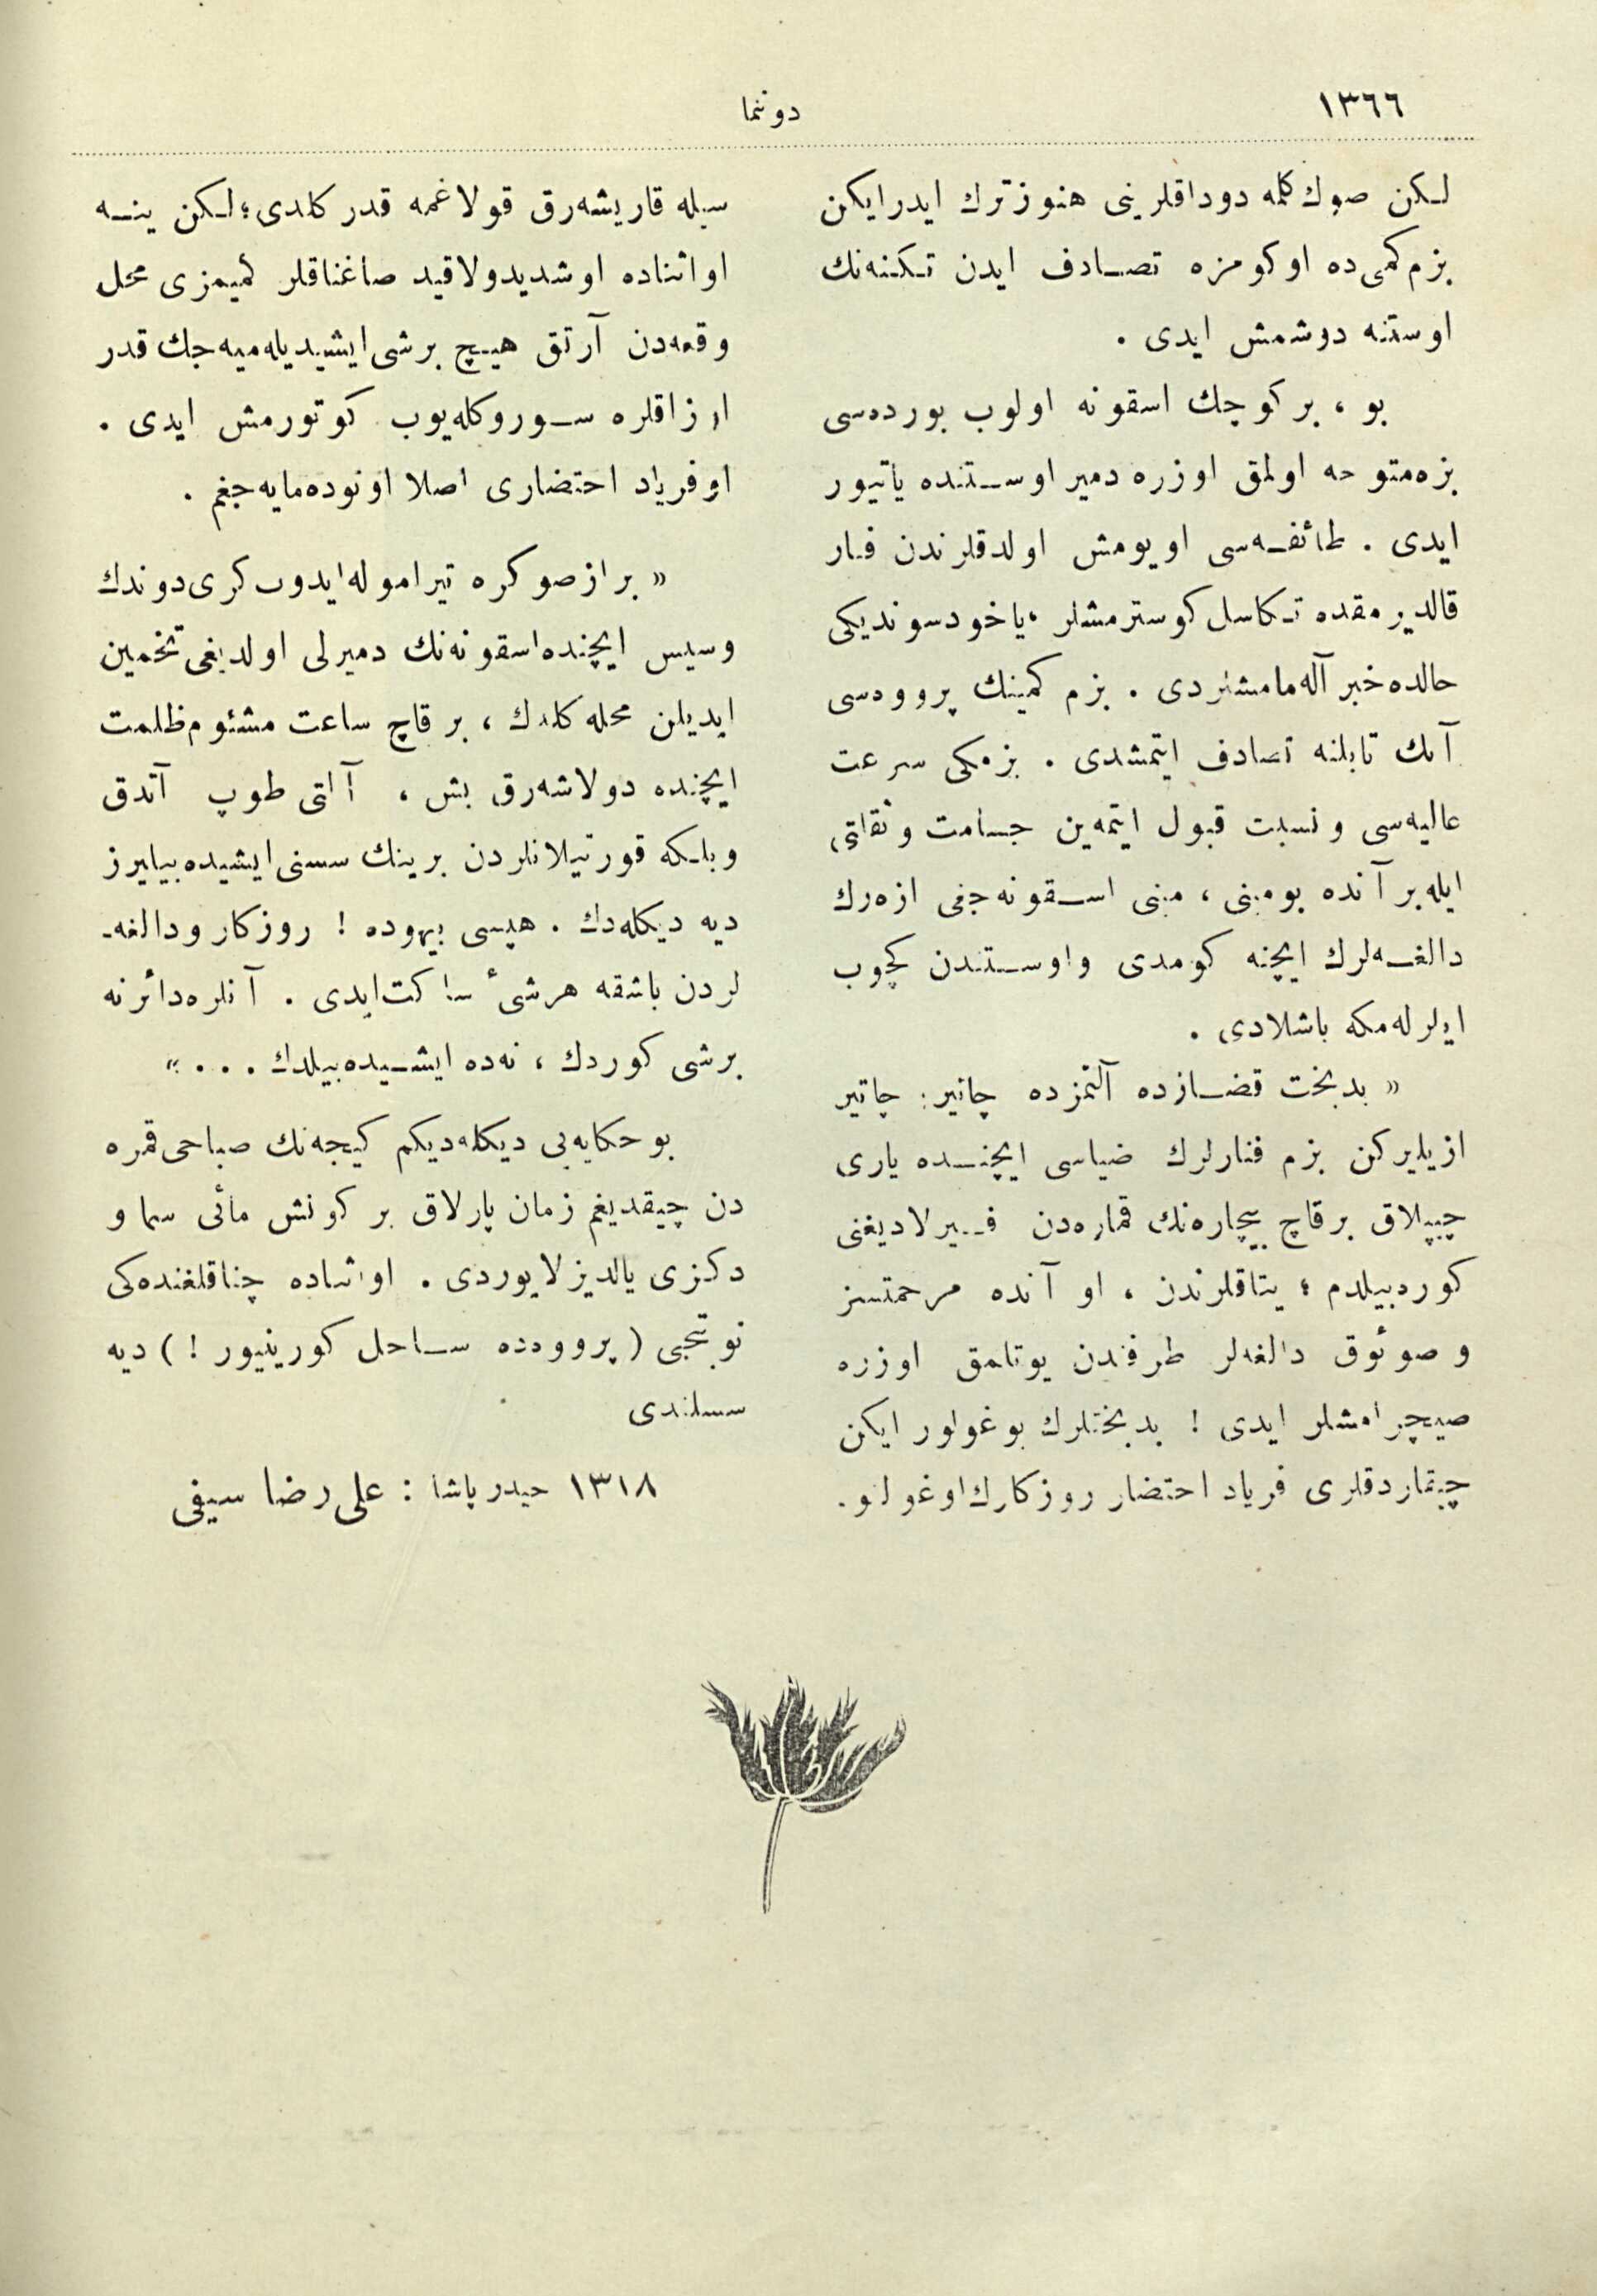 ١٣٦٦
دوننما
لكن صوك كلمه دوداقلرینی هنوز ترك ایدر ایكن
بزم كمی ده اوكومزه تصادف ایدن تكنه‌نك
اوستنه دوشمش ایدی .
بو ، بر كوچك اسقونه اولوب بورده‌سی
بزه متوجه اولمق اوزره دمیر اوستنده یاتیور
ایدی . طائفه‌سی اویومش اولدقلرندن فنار
قالدیرمقده تكاسل كوسترمشلر ، یاخود سوندیكی
حالده خبر آله‌مامشلردی . بزم كمینك پرووه‌سی
آنك تابلنه تصادف ایتمشدی . بزمكی سرعت
عالیه‌سی و نسبت قبول ایتمه‌ین جسامت و ثقلتی
ایله بر آنده بو مینی ، مینی اسقونه‌جغی ازه‌رك
دالغه‌لرك ایچنه كومدی و اوستندن كچوب
ایلرله‌مكه باشلادی .
« بدبخت قضازده آلتمزده چاتیر چاتیر
ازیلیركن بزم فنارلرك ضیاسی ایچنده یاری
چیپلاق بر قاچ بیچاره‌نك قماره‌دن فیرلادیغنی
كوره‌بیلدم ؛ یتاقلرندن ، او آنده مرحمتسز
و صوئوق دالغه‌لر طرفندن یوتلمق اوزره
صیچرامشلر ایدی ! بدبختلرك بوغولور ایكن
چیقاردقلری فریاد احتضار روزكارك اوغولتو-
سیله قاریشه‌رق قولاغمه قدر كلدی ؛ لكن ینه
او اثناده او شدید و لاقید صاغناقلر كمیمزی محل
وقعه‌دن آرتق هیچ بر شی ایشیدیله‌میه‌جك قدر
اوزاقلره سوروكله‌یوب كوتورمش ایدی .
او فریاد احتضاری اصلا اونوده‌مایه‌جغم .
« بر از صوكره تیراموله ایدوب كری دوندك
و سیس ایچنده اسقونه‌نك دمیرلی اولدیغی تخمین
ایدیلن محله كلدك ، بر قاچ ساعت مشئوم ظلمت
ایچنده دولاشه‌رق بش ، آلتی طوپ آتدق
و بلكه قورتیلانلردن برینك سسنی ایشیده‌بیلیرز
دیه دیكله‌دك . هپسی بیهوده ! روزكار و دالغه-
لردن باشقه هر شیء ساكت ایدی . آنلره دائر نه
بر شی كوردك ، نه‌ده ایشیده‌بیلدك . . . »
بو حكایه‌یی دیكله‌دیكم كیجه‌نك صباحی قمره
دن چیقدیغم زمان پارلاق بر كونش مائی سما و
دكزی یالدیزلایوردی . او اثناده چناقلغنده‌كی
نوبتجی ( پرووه‌ده ساحل كورینیور ! ) دیه
سسلندی
١٣١٨ حیدر پاشا : علی رضا سیفی